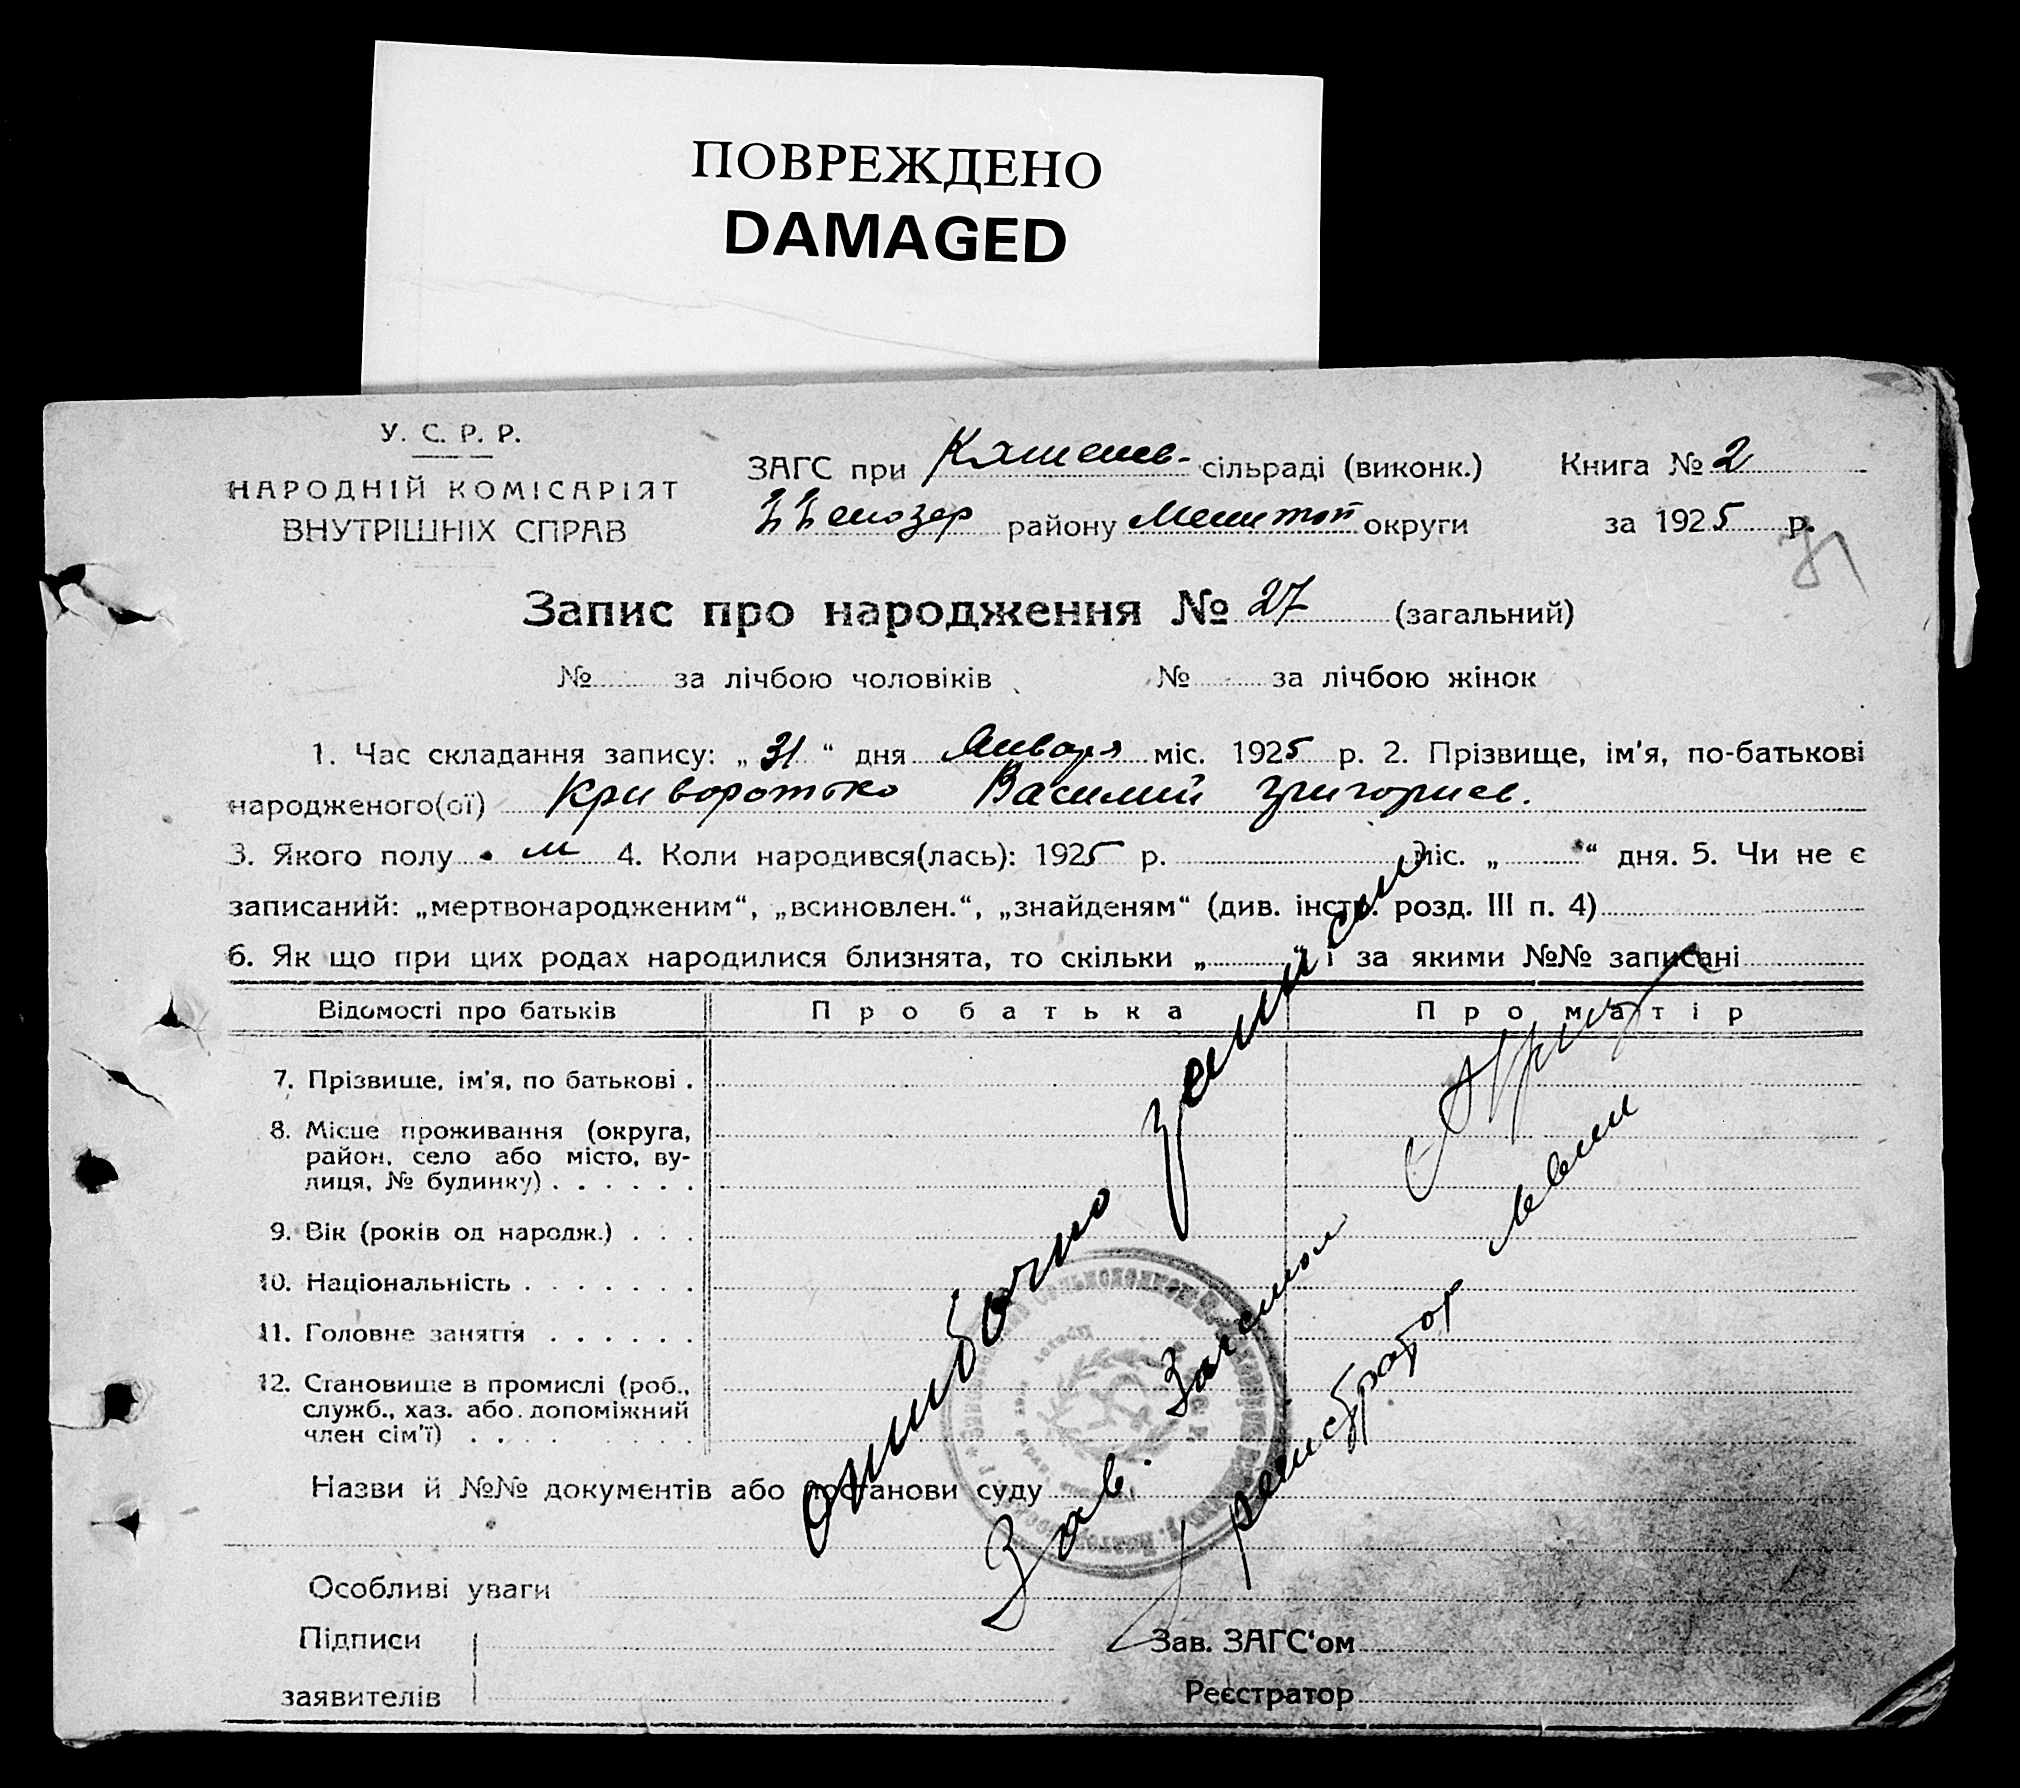 ПОВРЕЖДЕНО
DAMAGED
У. С. Р. Р.
НАРОДНІЙ КОМІСАРІЯТ
ВНУТРІШНІХ СПРАВ
ЗАГС при сільраді (виконк.)
району Мелитоп округи
Книга № 2
за 1925 р.
71
Запис про народження № 27 (загальний)
№ за лічбою чоловіків № за лічбою жінок
1. Час складання запису: „31“ дня Января міс. 1925 р. 2. Прізвище, ім'я, по-батькові
народженого(ої) Криворотько Василий Григориев.
3. Якого полу м 4. Коли народився(лась): 1925 р. міс. „ “ дня. 5. Чи не є
записаний: „мертвонародженим“, „всиновлен.“, „знайденям“ (див. інстр. розд. III п. 4)
6. Як що при цих родах народилися близнята, то скільки „ “ і за якими №№ записані
Відомості про батьків Про батька Про матір
7. Прізвище, ім'я, по батькові .
8. Місце проживання (округа,
район, село або місто, ву-
лиця, № будинку) . . . . . .
9. Вік (років од народж.) . . .
10. Національність . . . . . . .
11. Головне заняття . . . . . .
12. Становище в промислі (роб.,
служб., хаз. або допоміжний
член сім'ї) . . . . . . .
Назви й №№ документів або постанови суду
Особливі уваги
Підписи
заявителів
Зав. ЗАГС'ом
Реєстратор
Ошибочно записан
Зав. Загсом
регистратор